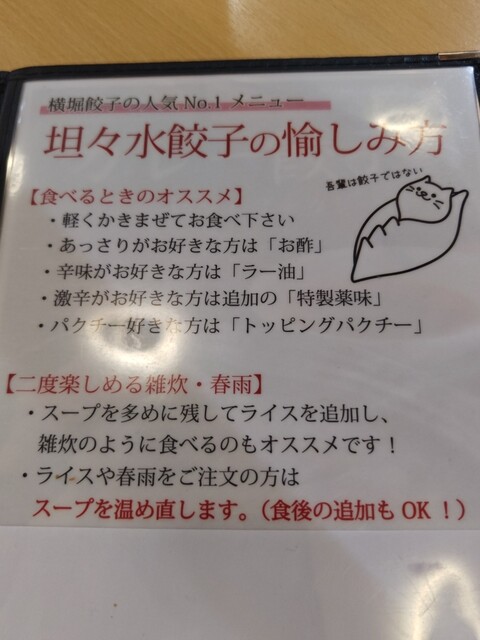 横堀餃子の人気 No.1 メニュー
坦々水餃子の愉しみ方
吾輩は餃子ではない
【食べるときのオススメ】
・軽くかきまぜてお食べ下さい
・あっさりがお好きな方は「お酢」
・辛味がお好きな方は「ラー油」
・激辛がお好きな方は追加の「特製薬味」
・パクチー好きな方は「トッピングパクチー」
【二度楽しめる雑炊・春雨】
・スープを多めに残してライスを追加し、
雑炊のように食べるのもオススメです!
・ライスや春雨をご注文の方は
スープを温め直します。(食後の追加も OK!)